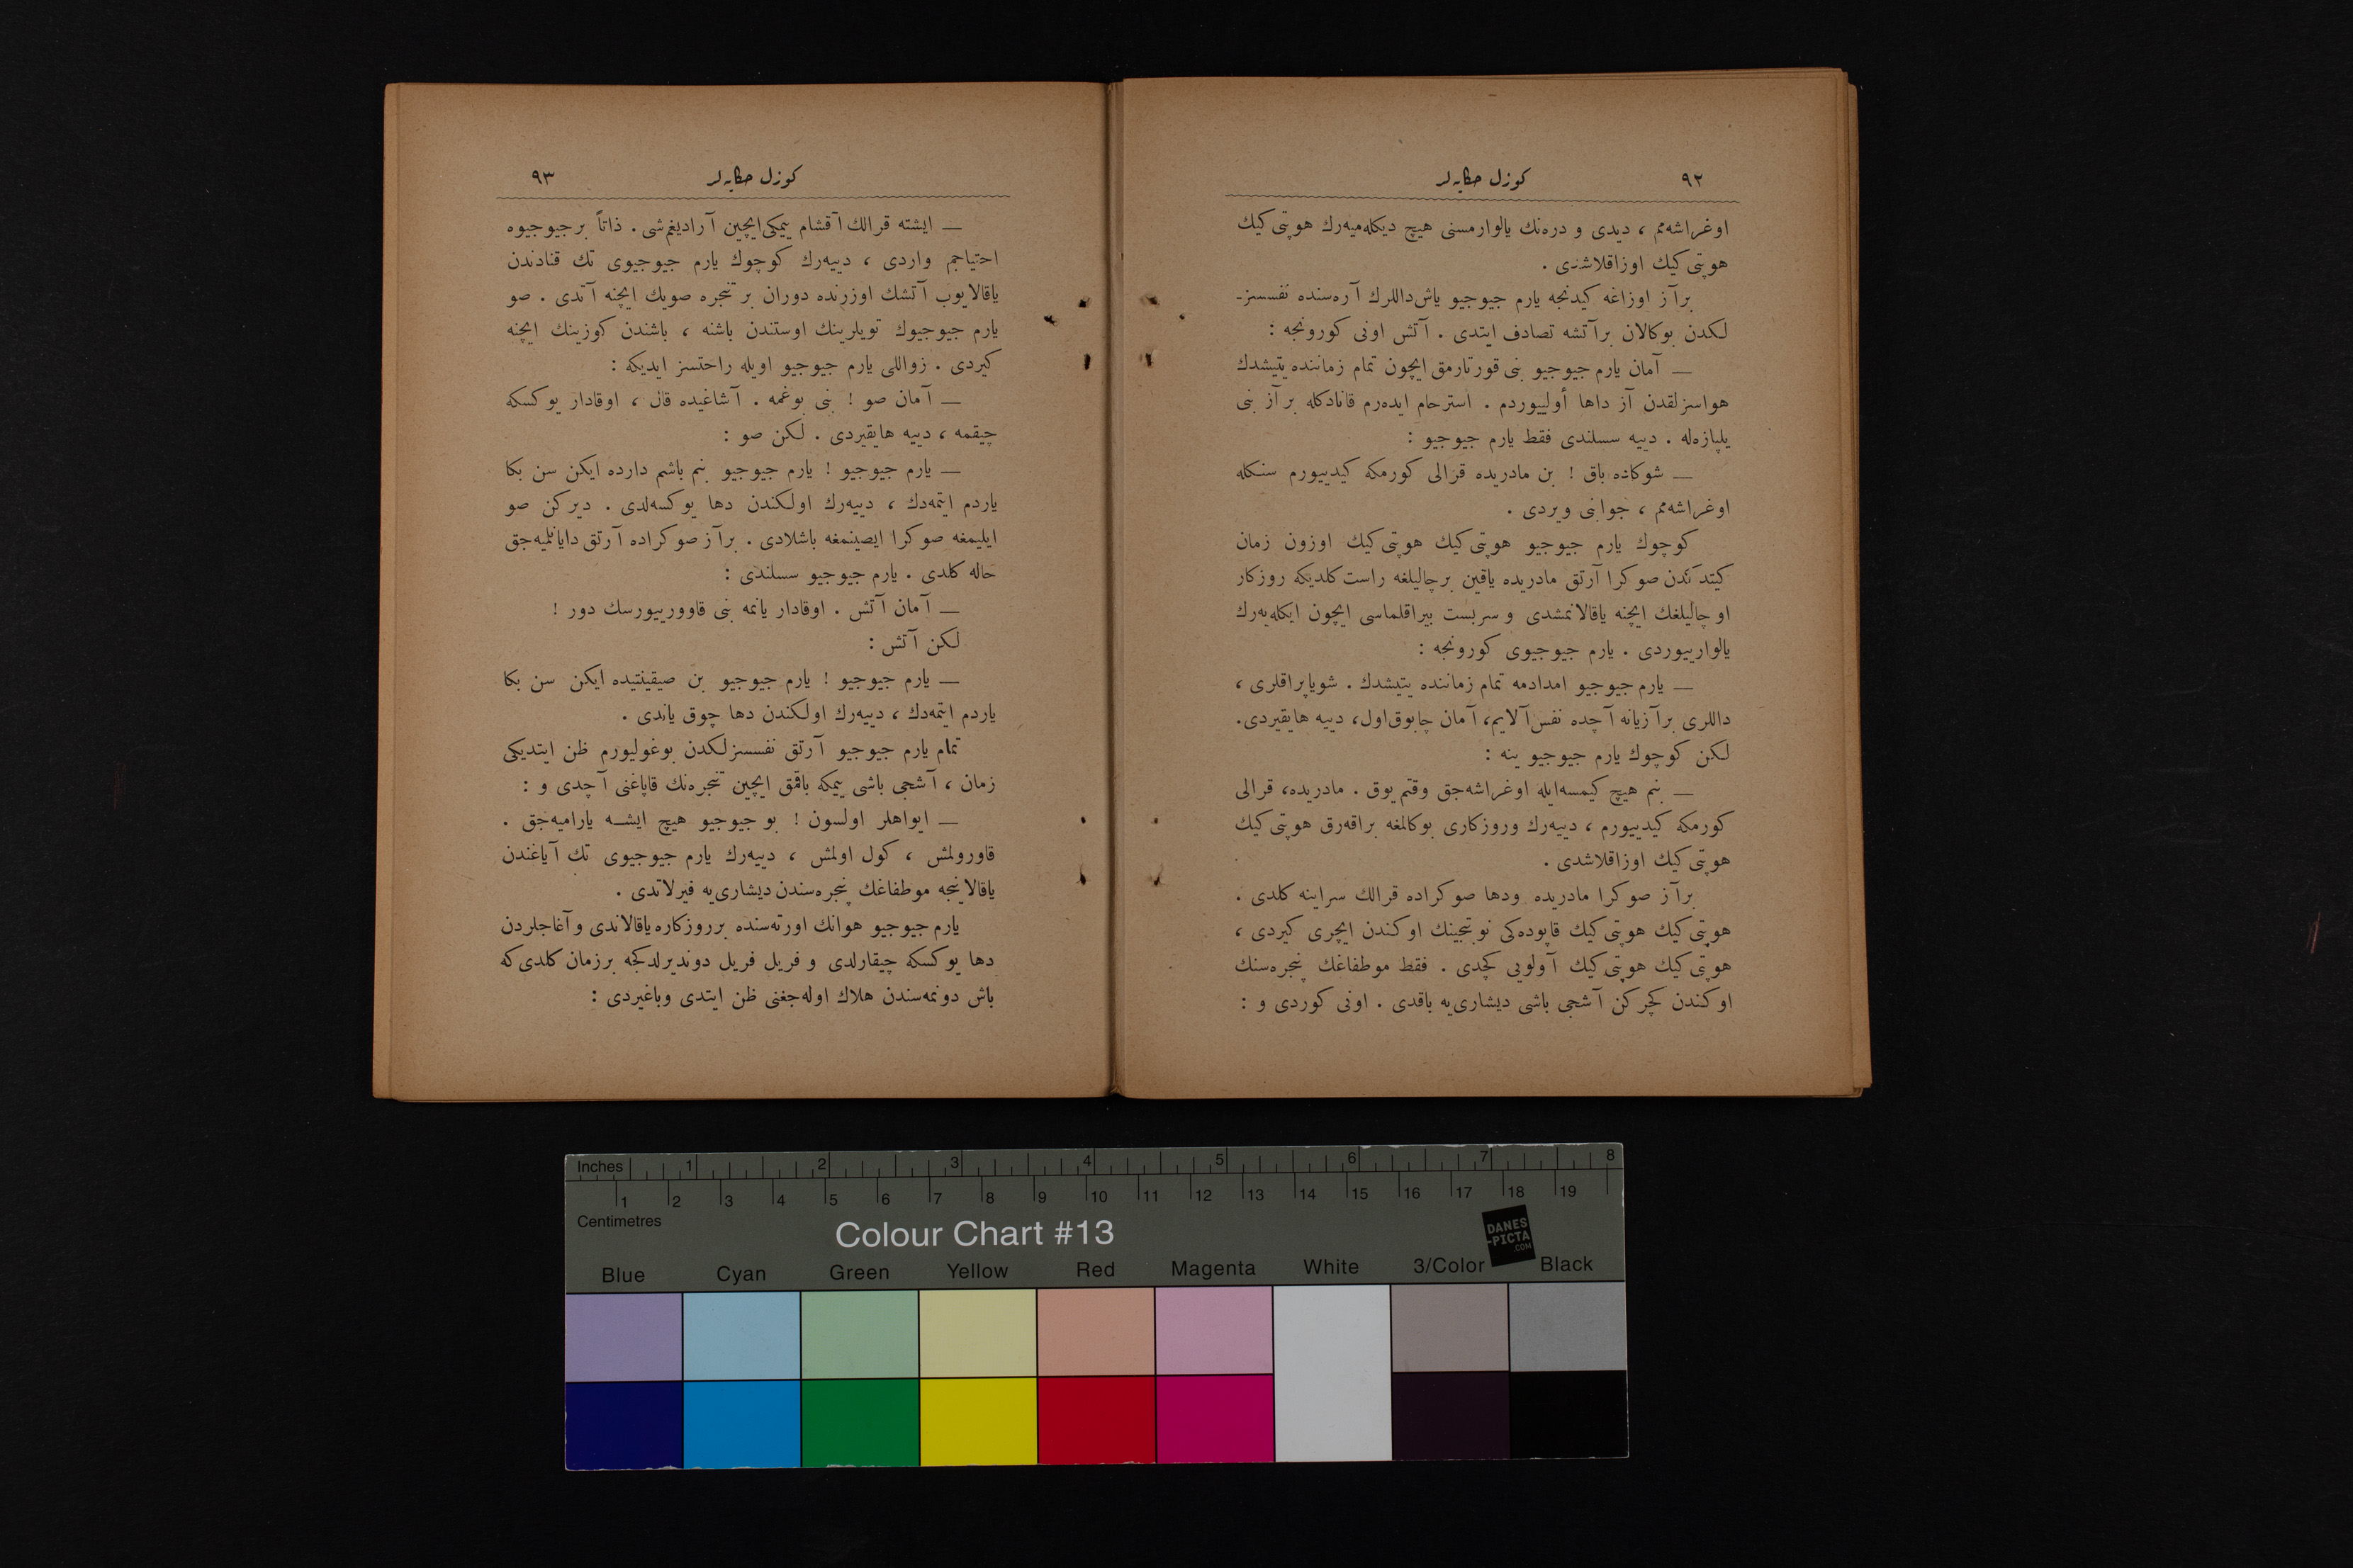 ٩٢
كوزل حكايه‌لر
اوغراشه‌مم ، ديدى و دره‌نك يالوارمسنى هيچ ديكله‌ميه‌رك هوپتى كيك
هوپتى كيك اوزاقلاشدى .
برآز اوزاغه كيدنجه يارم جيوجيو ياش‌داللرك آره‌سنده نفسسز-
لكدن بوكالان برآتشه تصادف ايتدى . آتش اونى كورونجه :
— آمان يارم جيوجيو بنى قورتارمق ايچون تمام زماننده يتيشدك
هواسزلقدن آز داها أولييوردم . استرحام ايده‌رم قانادكله برآز بنى
يلپازه‌له . دييه سسلندى فقط يارم جيوجيو :
— شوكاده باق ! بن مادريده قرالى كورمكه كيدييورم سنكله
اوغراشه‌مم ، جوابنى ويردى .
كوچوك يارم جيوجيو هوپتى كيك هوپتى كيك اوزون زمان
كيتدكدن صوكرا آرتق مادريده ياقين برچاليلغه راست‌كلديكه روزكار
او چاليلغك ايچنه ياقالانمشدى و سربست بيراقلماسى ايچون ايكله‌يه‌رك
يالوارييوردى . يارم جيوجيوى كورونجه :
— يارم جيوجيو امدادمه تمام زماننده يتيشدك . شوياپراقلرى ،
داللرى برآزيانه آچده نفس‌آلايم، آمان چابوق‌اول، دييه هايقيردى.
لكن كوچوك يارم جيوجيو ينه :
— بنم هيچ كيمسه‌ايله اوغراشه‌جق وقتم يوق . مادريده، قرالى
كورمكه كيدييورم ، دييه‌رك وروزكارى بوكالمغه براقه‌رق هوپتى كيك
هوپتى كيك اوزاقلاشدى .
برآز صوكرا مادريده ودها صوكراده قرالك سراينه كلدى .
هوپتى كيك هوپتى كيك قاپوده‌كى نوبتجينك اوكندن ايچرى كيردى ،
هوپتى كيك هوپتى كيك آولويى كچدى . فقط موطفاغك پنجره‌سنك
اوكندن كچركن آشجى باشى ديشارى‌يه باقدى . اونى كوردى و :
كوزل حكايه‌لر
٩٣
— ايشته قرالك آقشام ييمكى‌ايچين آراديغم‌شى . ذاتاً برجيوجيوه
احتياجم واردى ، دييه‌رك كوچوك يارم جيوجيوى تك قنادندن
ياقالايوب آتشك اوزرنده دوران برتنجره صويك ايچنه آتدى . صو
يارم جيوجيوك تويلرينك اوستندن باشنه ، باشندن كوزينك ايچنه
كيردى . زواللى يارم جيوجيو اويله راحتسز ايديكه :
— آمان صو ! بنى بوغمه . آشاغيده قال ، اوقادار يوكسكه
چيقمه ، دييه هايقيردى . لكن صو :
— يارم جيوجيو ! يارم جيوجيو بنم باشم دارده ايكن سن بكا
ياردم ايتمه‌دك ، دييه‌رك اولكندن دها يوكسه‌لدى . ديركن صو
ايليمغه صوكرا ايصينمغه باشلادى . برآز صوكراده آرتق دايانلميه‌جق
حاله كلدى . يارم جيوجيو سسلندى :
— آمان آتش . اوقادار يانمه بنى قاوورييورسك دور !
لكن آتش :
— يارم جيوجيو ! يارم جيوجيو بن صيقينتيده ايكن سن بكا
ياردم ايتمه‌دك ، دييه‌رك اولكندن دها چوق ياندى .
تمام يارم جيوجيو آرتق نفسسزلكدن بوغوليورم ظن ايتديكى
زمان ، آشجى باشى ييمكه باقمق ايچين تنجره‌نك قاپاغنى آچدى و :
— ايواهلر اولسون ! بو جيوجيو هيچ ايشه ياراميه‌جق .
قاورولمش ، كول اولمش ، دييه‌رك يارم جيوجيوى تك آياغندن
ياقالاينجه موطفاغك پنجره‌سندن ديشارى‌يه فيرلاتدى .
يارم جيوجيو هوانك اورته‌سنده برروزكاره ياقالاندى وآغاجلردن
دها يوكسكه چيقارلدى و فريل فريل دونديرلدكجه برزمان كلدى‌كه
باش دونمه‌سندن هلاك اوله‌جغنى ظن ايتدى وباغيردى :
Inches 1 2 3 4 5 6 7 8
1 2 3 4 5 6 7 8 9 10 11 12 13 14 15 16 17 18 19
Centimetres
Colour Chart #13
DANES
-PICTA
.COM
Blue Cyan Green Yellow Red Magenta White 3/Color Black